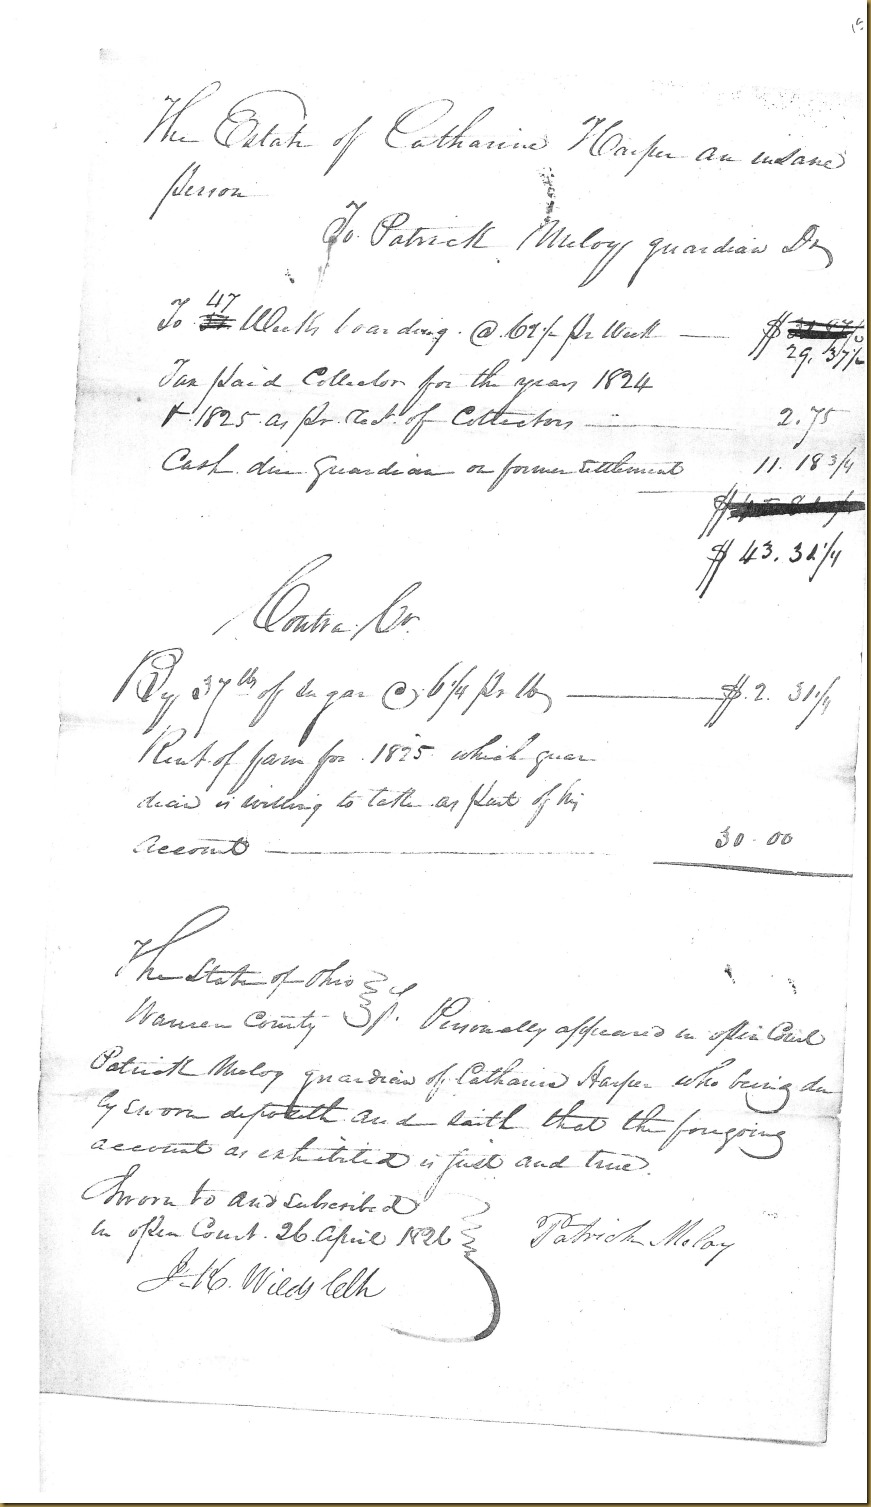 The Estate of Catharine Harper an insane
person
To Patrick Meloy guardian Dr
47
To Weeks boarding @ 62½ pr Week — $
29.37½
Tax paid Collector for the years 1824
& 1825 as pr rect. of Collectors — 2.75
Cash due guardian on former settlement 11.18 3/4
$ 43.31 1/4
Contra Cr.
By 37 lbs of sugar @ 6 1/4 pr lb — $ 2.31 1/4
Rent of farm for 1825 which guar
dian is willing to take as part of his
account — 30.00
The State of Ohio
Warren County } ss. Personally appeared in open Court
Patrick Meloy guardian of Catharine Harper who being du
ly sworn deposeth and saith that the foregoing
account as exhibited is just and true.
Sworn to and subscribed
in open Court 26 April 1826 } Patrick Meloy
J. K. Wilds Clk